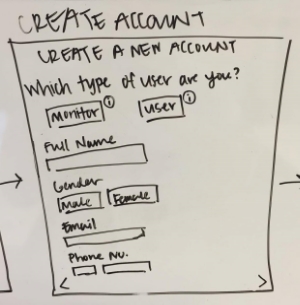 CREATE ACCOUNT
CREATE A NEW ACCOUNT
Which type of user are you?
Monitor i user i
Full Name
Gender
Male Female
Email
Phone Nu.
< >